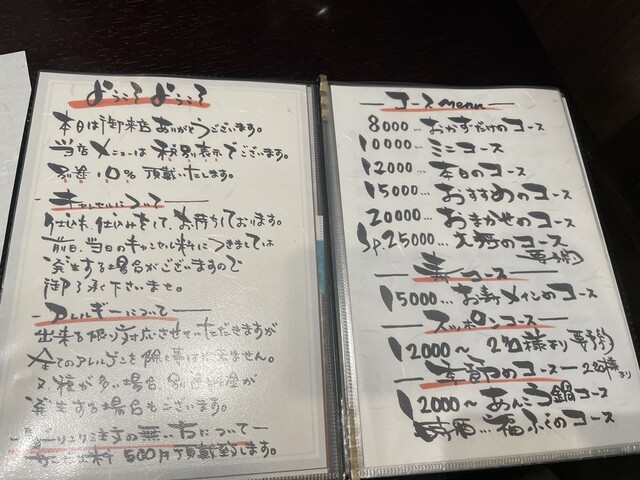 ようこそようこそ
本日は御来店ありがとうございます。
当店メニューは税別表示でございます。
別途10%頂戴いたします。
キャンセルについて
仕入れ、仕込みをして、お待ちしております。
前日、当日のキャンセル料につきましては
発生する場合がございますので
御了承下さいませ。
アレルギーについて
出来る限り対応させていただきますが
全てのアレルゲンを除く事は出来ません。
又種が多い場合、別途料金が
発生する場合もございます。
ドリンク注文の無い方について
料500円頂戴致します。
コースmenu
8000…おかずだけのコース
10000…ミニコース
12000…本日のコース
15000…おすすめのコース
20000…おまかせのコース
Sp.25000…のコース
要予約
寿しコース
15000…お寿メインのコース
スッポンコース
12000〜2名様より要予約
季節のコース 2名様より
12000〜あんこう鍋コース
時価…福ふくのコース